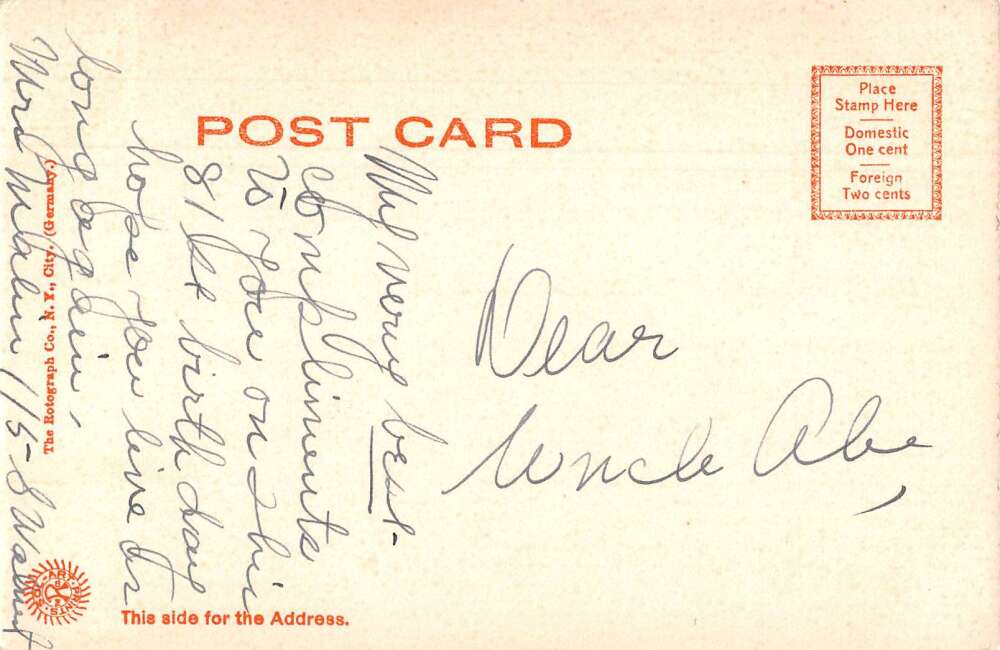 POST CARD
Place
Stamp Here
Domestic
One cent
Foreign
Two cents
Dear
Uncle Abe,
My very best
compliments
to you on this
81st birthday
hope you live
long again,
Mrs 115 S Walnut
The Rotograph Co., N. Y., City. (Germany.)
This side for the Address.